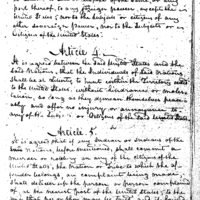 part thereof, to any foreign power, except the
United States; nor to the subjects or citizens of any
other sovereign power, nor to the Subjects or
Citizens of the United States.
Article 4.
It is agreed between the said United States and the
said Nations, that the individuals of said Nations,
shall be at liberty to hunt within the Territory ceded
to the United States, without hindrance or moles-
tation, so long as they demean themselves peaceably
and offer no injury or annoyance to
any of the Subjects or Citizens of the said United States.
Article 5.
It is agreed that if any Indian or Indians of the
said nations, before mentioned, shall commit a
murder or robbery on any of the citizens of the
United States, the Nation or Tribe to which the of-
fender belongs, on complaint being made,
shall deliver up the person or persons complained
of, at the nearest post of the United States; to the
end that he or they may be tried,